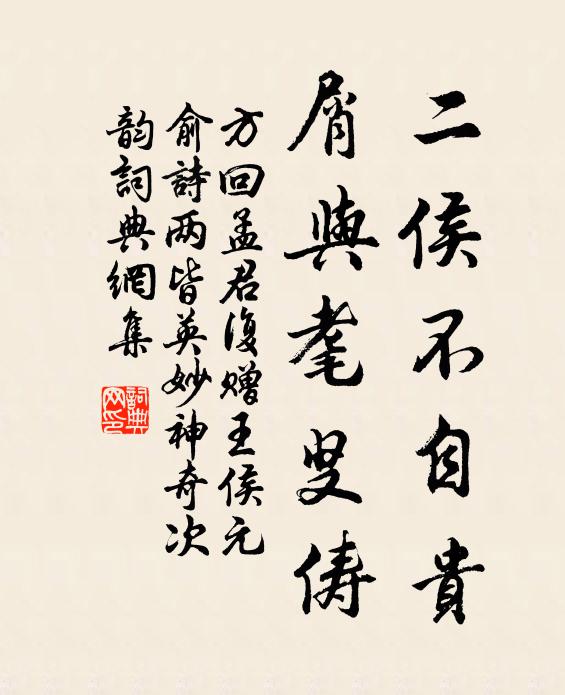 二侯不自貴
屑與耄叟儔
方回孟君復贈王侯元
俞詩两皆英妙神奇次
韵詞典網集
詞典
网印